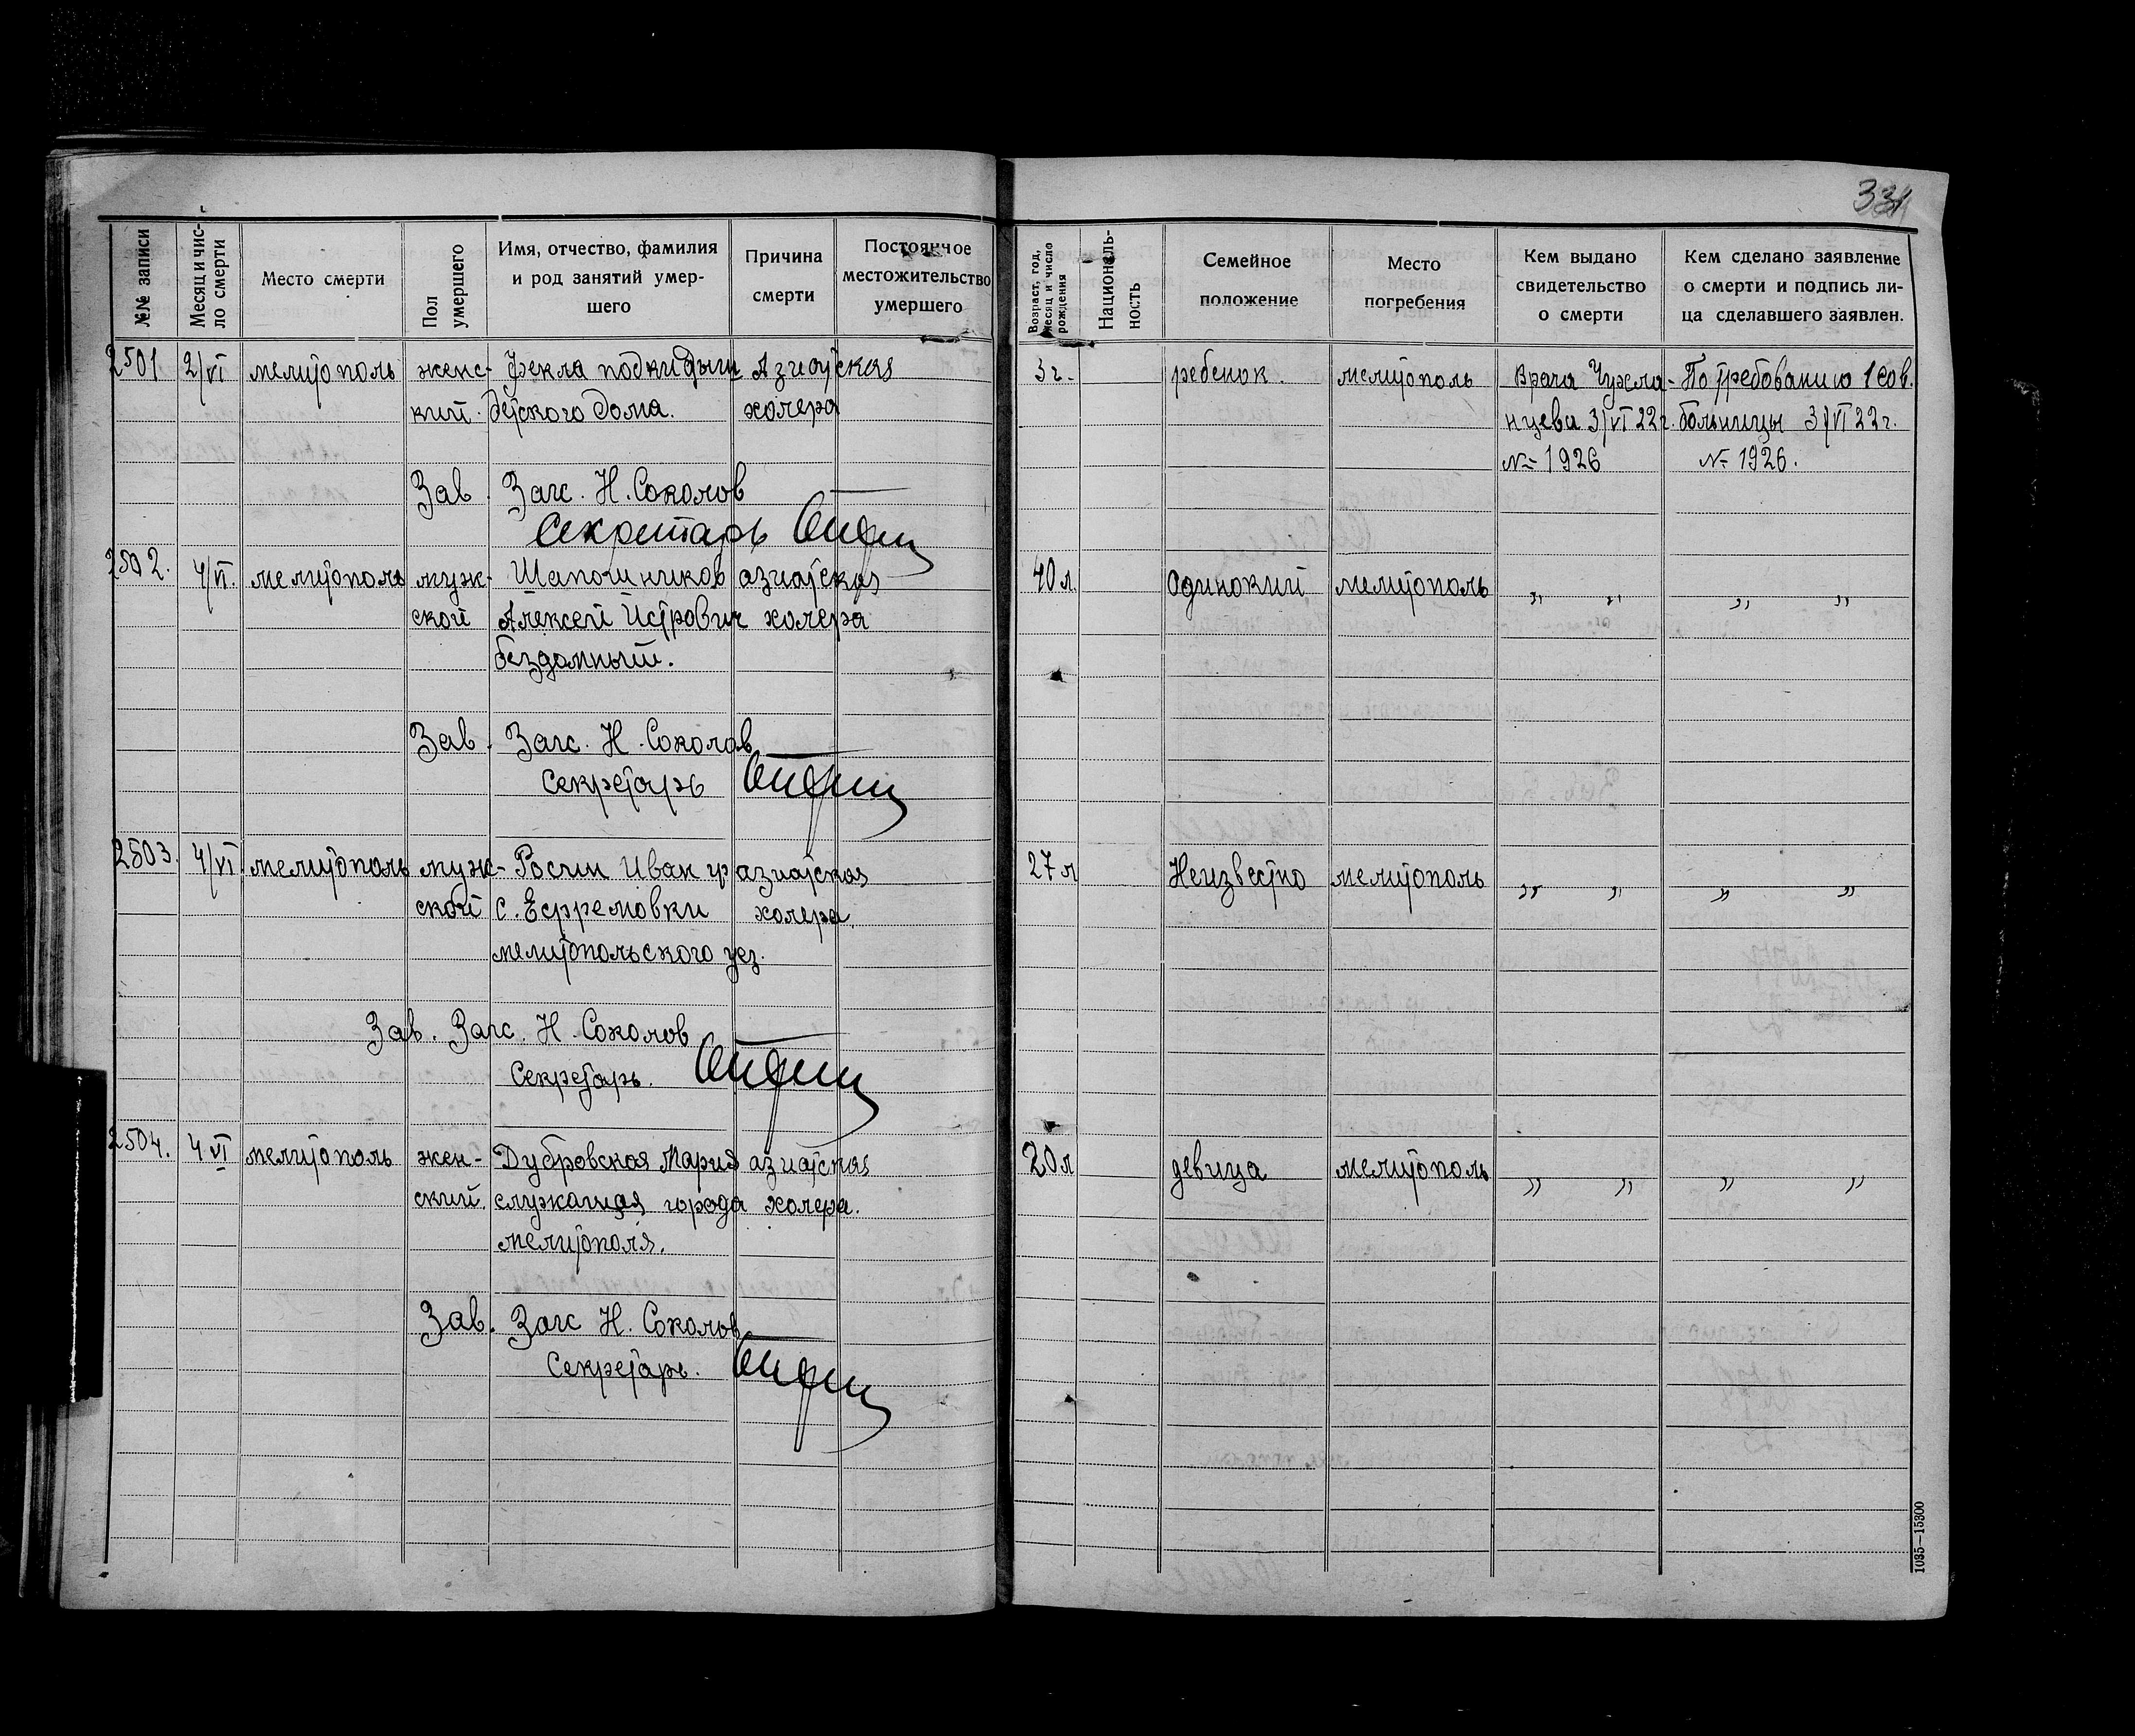 334
№№ записи
Месяц и чис-
ло смерти
Место смерти
Пол
умершего
Имя, отчество, фамилия
и род занятий умер-
шего
Причина
смерти
Постоянное
местожительство
умершего
Возраст, год,
месяц и число
рождения
Националь-
ность
Семейное
положение
Место
погребения
Кем выдано
свидетельство
о смерти
Кем сделано заявление
о смерти и подпись ли-
ца сделавшего заявлен.
2501 2/VI мелитополь женс- Фекла подкидыш Азиатская 3 г. ребенок. мелитополь Врача Чухла- По требованию 1 сов.
кий. детского дома. холера нцева 3/VI 22 г. больницы 3/VI 22 г.
№ 1926 № 1926.
Зав. Загс. Н. Соколов
Секретарь
2502. 4/VI. мелитополь муж- Шапошников азиатская 40 л. Одинокий мелитополь „ „ „ „
ской Алексей Петрович холера
бездомный.
Зав. Загс. Н. Соколов
Секретарь
2503. 4/VI мелитополь муж- Росчин Иван гр азиатская 27 л Неизвестно мелитополь „ „ „ „
ской с. Ефремовки холера.
мелитопольского уез.
Зав. Загс. Н. Соколов
Секретарь.
2504. 4 VI мелитополь жен- Дубровская Мария азиатская 20 л девица мелитополь „ „ „ „
ский. служащая города холера.
мелитополя.
Зав. Загс Н. Соколов
Секретарь.
1035—15300